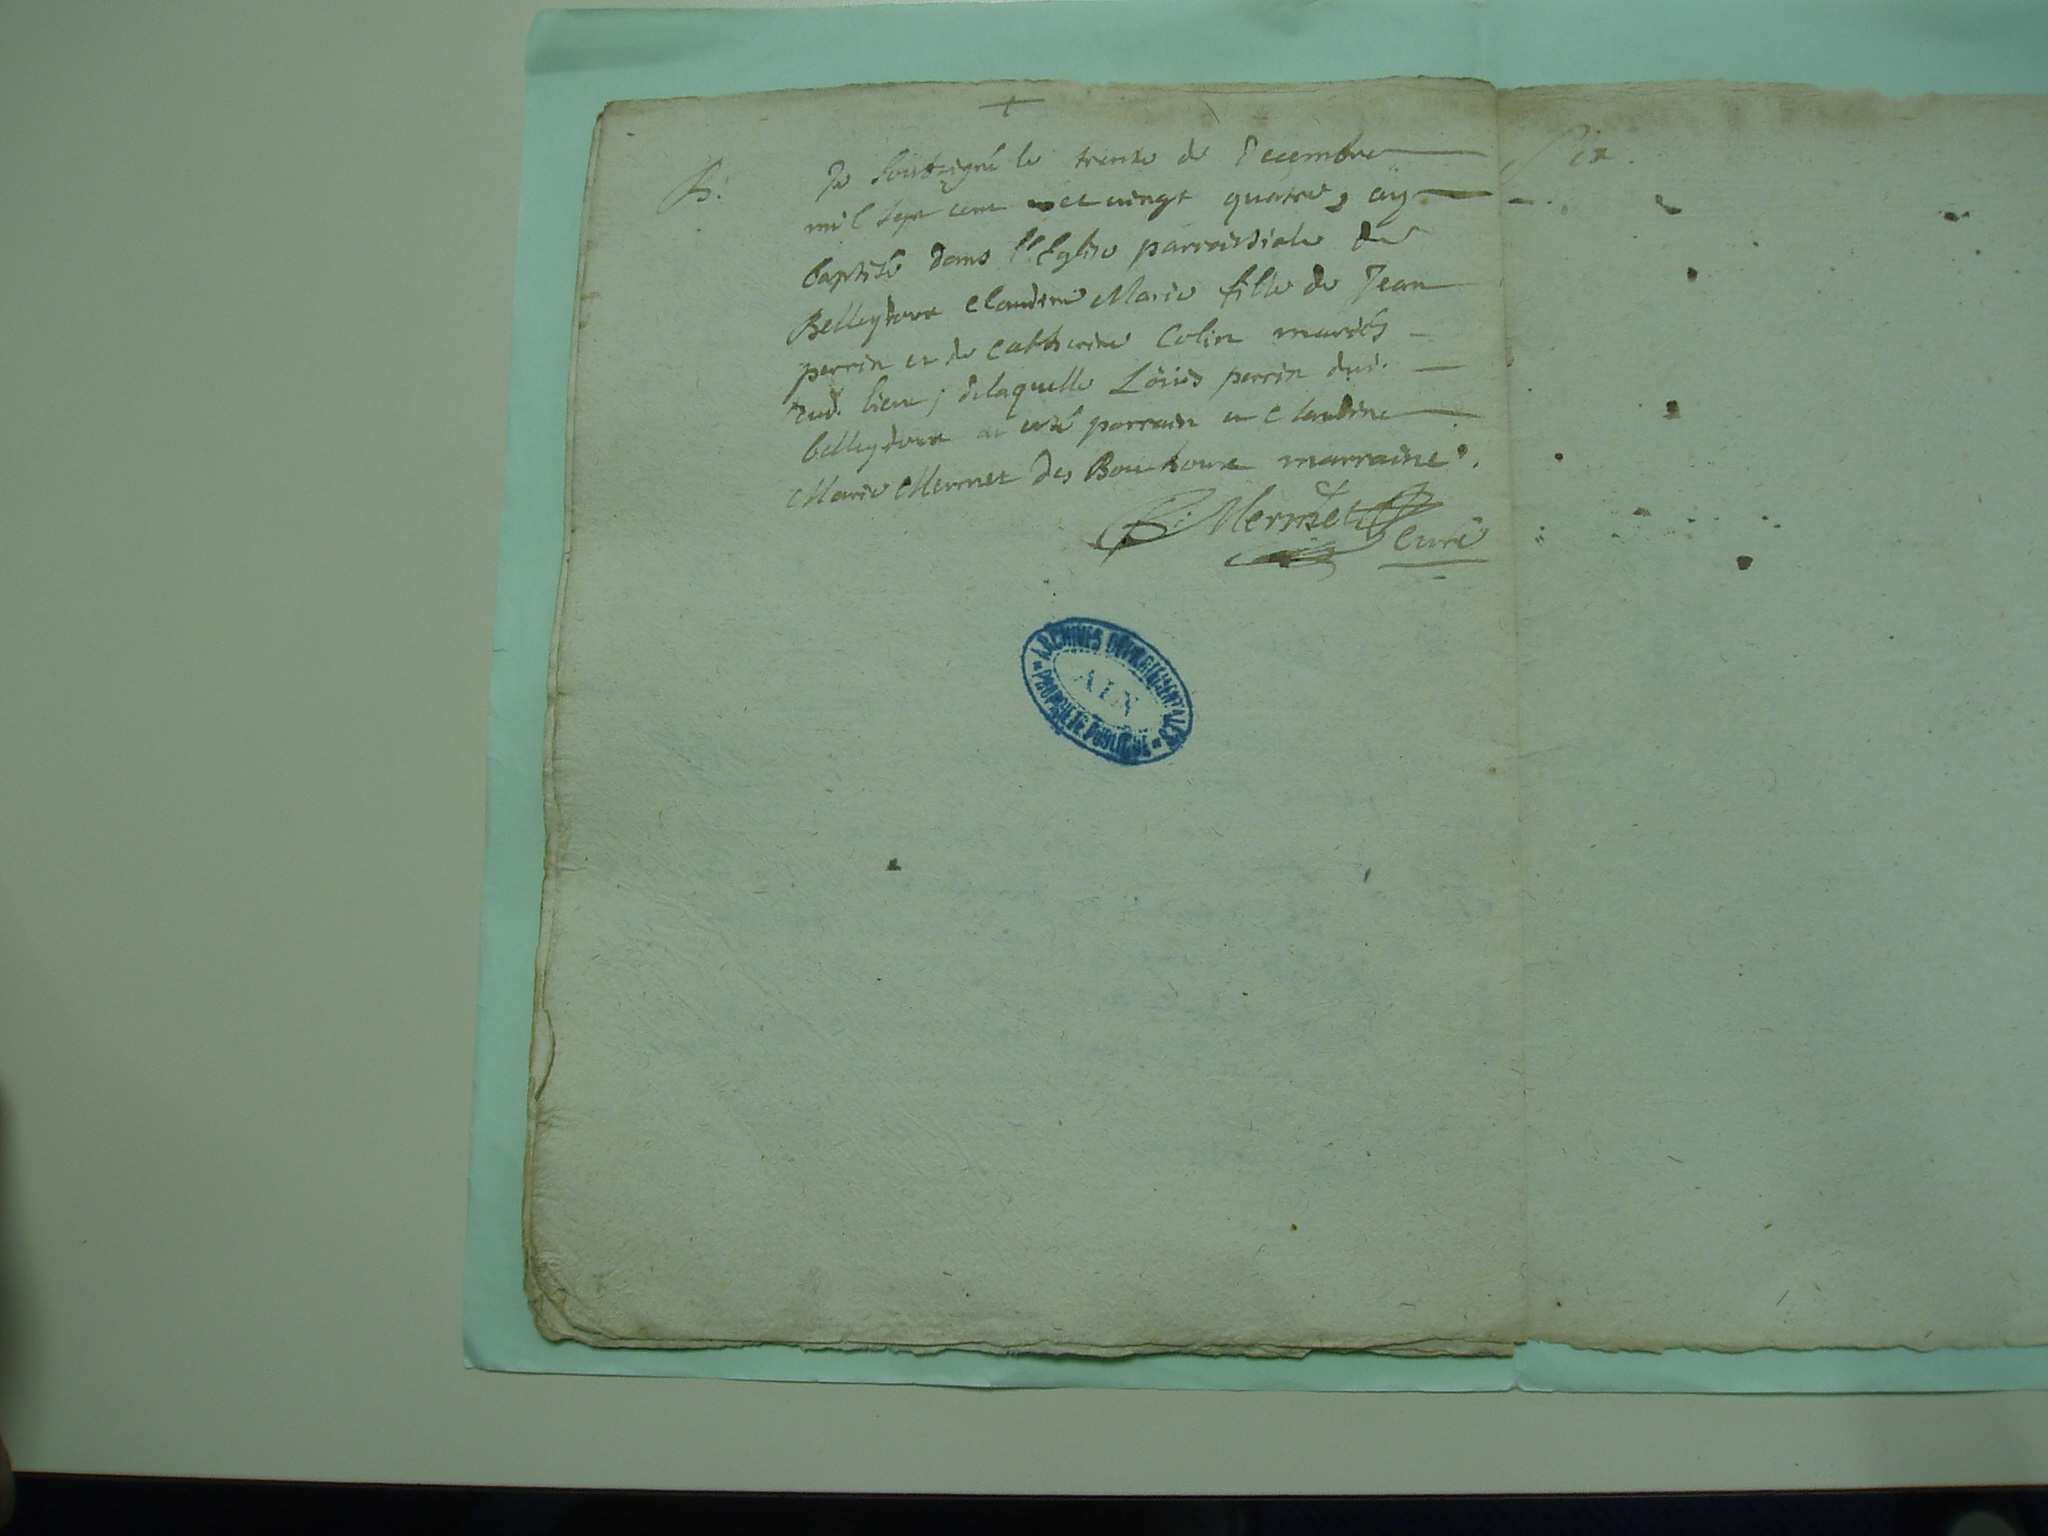 B.
Je soubsigné le trente de Decembre
mil sept cent et vingt quatre, ay
baptisé dans l'Eglise parroissiale de
Belleydoux Claudine Marie fille de Jean
perrin et de Catherine Colin mariés
dud. lieu; de laquelle Loüis perrin dud.
belleydoux at esté parrain et Claudine
Marie Mermet des Bouchoux marraine.
Mermet Curé
ARCHIVES DEPARTEMENTALES
AIN
PROPRIETE PUBLIQUE